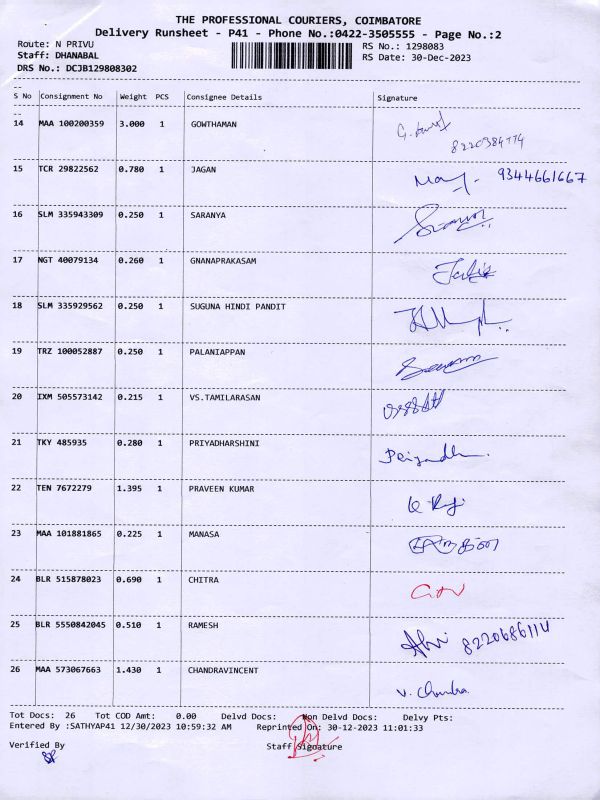 THE PROFESSIONAL COURIERS, COIMBATORE
Delivery Runsheet - P41 - Phone No.:0422-3505555 - Page No.:2
Route: N PRIVU RS No.: 1298083
Staff: DHANABAL RS Date: 30-Dec-2023
DRS No.: DCJB129808302
--
S No Consignment No Weight PCS Consignee Details Signature
--
14 MAA 100200359 3.000 1 GOWTHAMAN
15 TCR 29822562 0.780 1 JAGAN 9344661667
16 SLM 335943309 0.250 1 SARANYA
17 NGT 40079134 0.260 1 GNANAPRAKASAM
18 SLM 335929562 0.250 1 SUGUNA HINDI PANDIT
19 TRZ 100052887 0.250 1 PALANIAPPAN
20 IXM 505573142 0.215 1 VS.TAMILARASAN
21 TKY 485935 0.280 1 PRIYADHARSHINI
22 TEN 7672279 1.395 1 PRAVEEN KUMAR
23 MAA 101881865 0.225 1 MANASA
24 BLR 515878023 0.690 1 CHITRA
25 BLR 5550842045 0.510 1 RAMESH 8220686114
26 MAA 573067663 1.430 1 CHANDRAVINCENT V. Chandra
Tot Docs: 26 Tot COD Amt: 0.00 Delvd Docs: Non Delvd Docs: Delvy Pts:
Entered By :SATHYAP41 12/30/2023 10:59:32 AM Reprinted On: 30-12-2023 11:01:33
Verified By Staff Signature